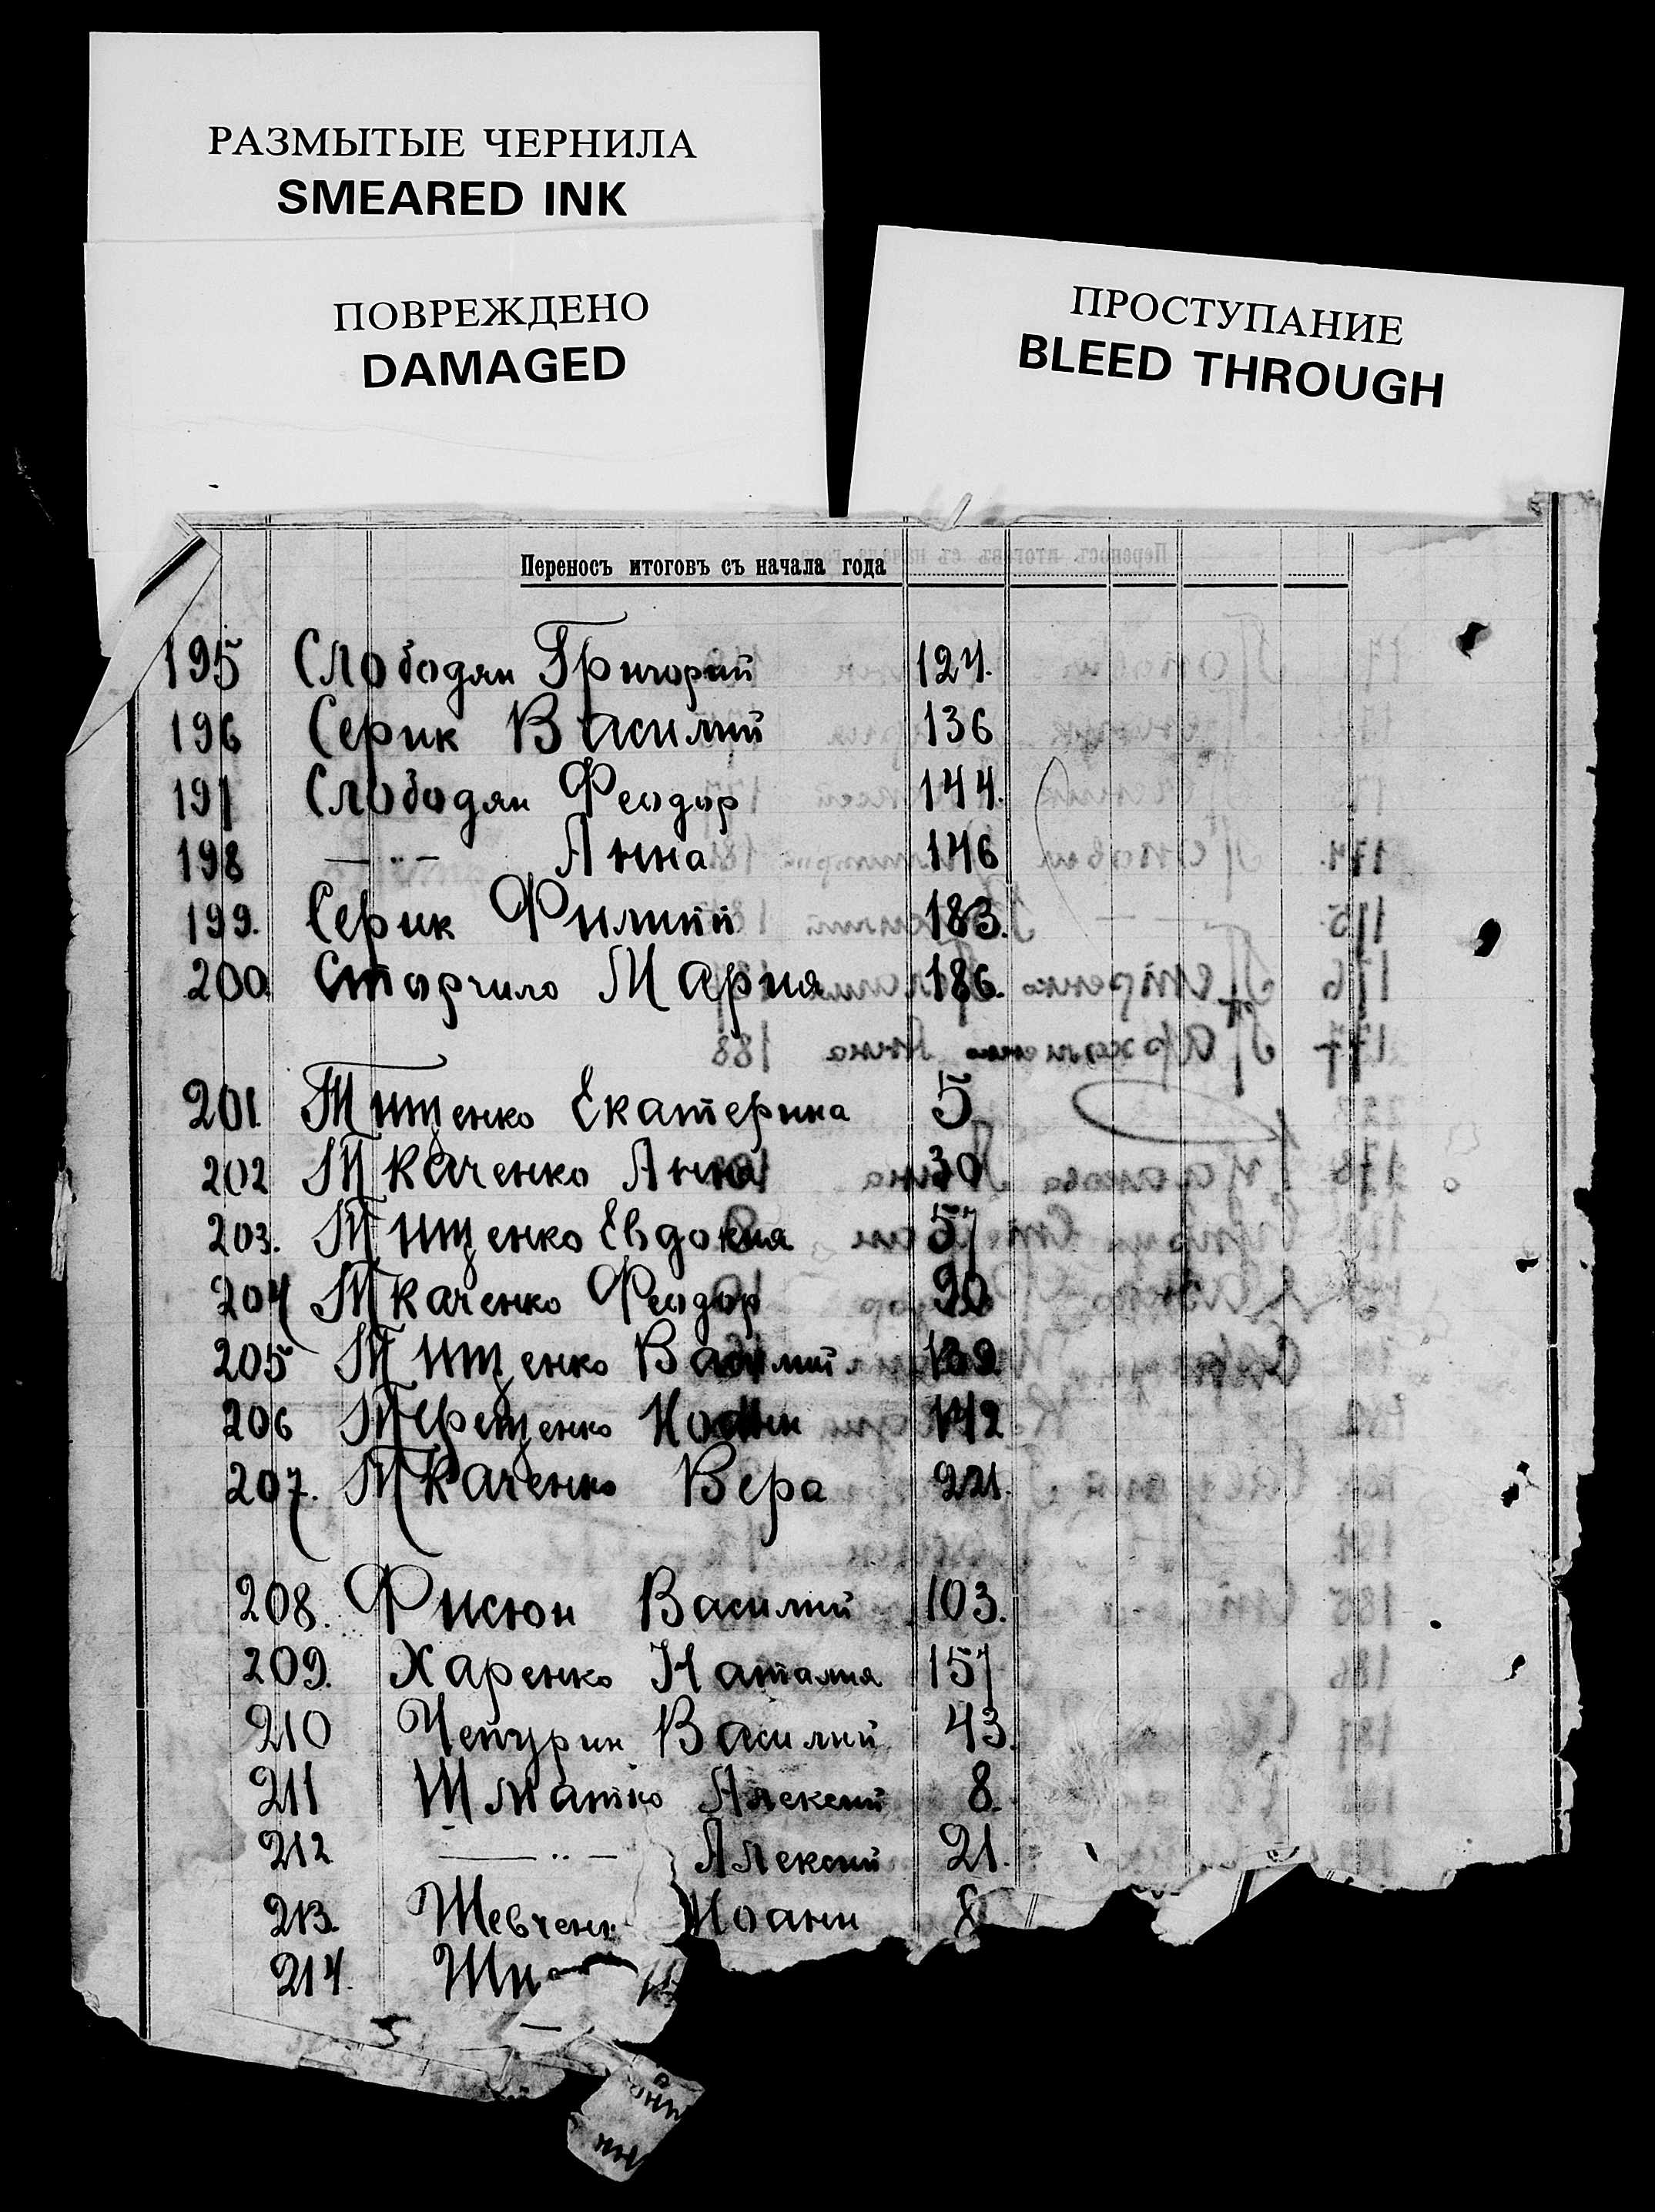 РАЗМЫТЫЕ ЧЕРНИЛА
SMEARED INK
ПОВРЕЖДЕНО
DAMAGED
ПРОСТУПАНИЕ
BLEED THROUGH
Переносъ итоговъ съ начала года
195 Слободян Григорий 124.
196 Серик Василий 136
197 Слободян Феодор 144.
198 —〃— Анна 146
199. Серик Филип 183.
200. Сторчило Мария 186.
201. Тищенко Екатерина 5
202 Ткаченко Анна 30
203. Тищенко Евдокия 57
204 Ткаченко Феодор 90
205 Тищенко Василий 139
206 Терещенко Иоанн 142
207. Ткаченко Вера 221.
208. Фисюн Василий 103.
209. Харенко Наталия 157
210 Чепурин Василий 43.
211 Шматко Алексий 8.
212 —〃— Алексий 21.
213. Шевченк Иоанн 8
214.